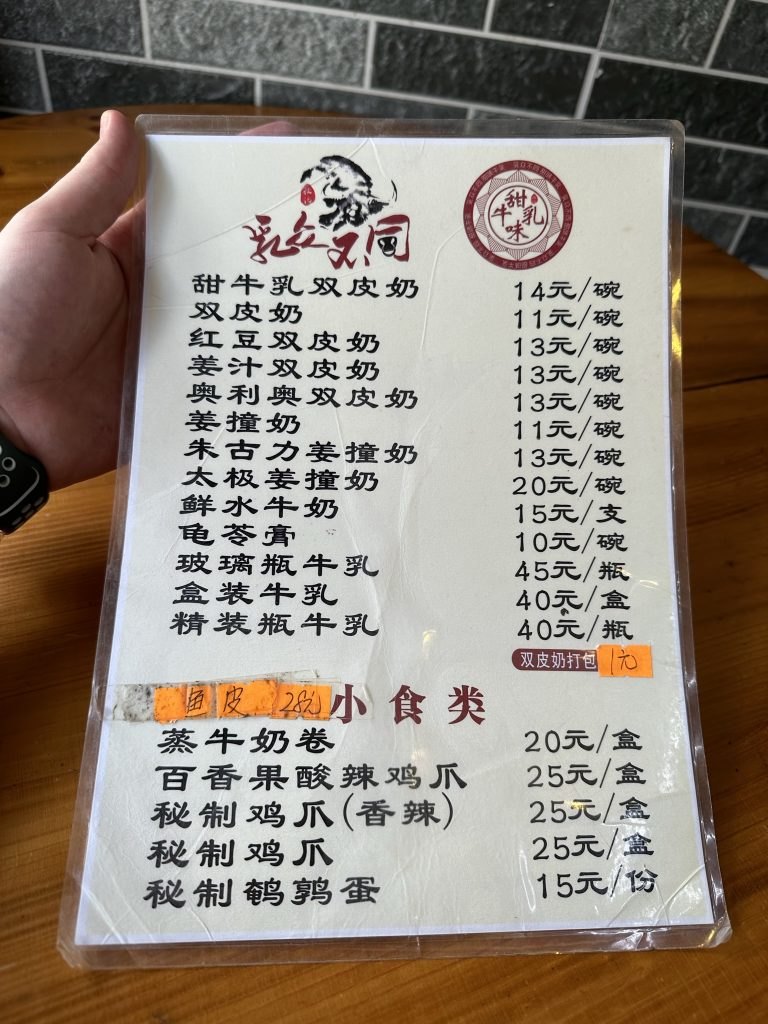 乳众不同
甜牛乳味
甜牛乳双皮奶 14元/碗
双皮奶 11元/碗
红豆双皮奶 13元/碗
姜汁双皮奶 13元/碗
奥利奥双皮奶 13元/碗
姜撞奶 11元/碗
朱古力姜撞奶 13元/碗
太极姜撞奶 20元/碗
鲜水牛奶 15元/支
龟苓膏 10元/碗
玻璃瓶牛乳 45元/瓶
盒装牛乳 40元/盒
精装瓶牛乳 40元/瓶
双皮奶打包 1元
鱼皮 28元 小食类
蒸牛奶卷 20元/盒
百香果酸辣鸡爪 25元/盒
秘制鸡爪(香辣) 25元/盒
秘制鸡爪 25元/盒
秘制鹌鹑蛋 15元/份